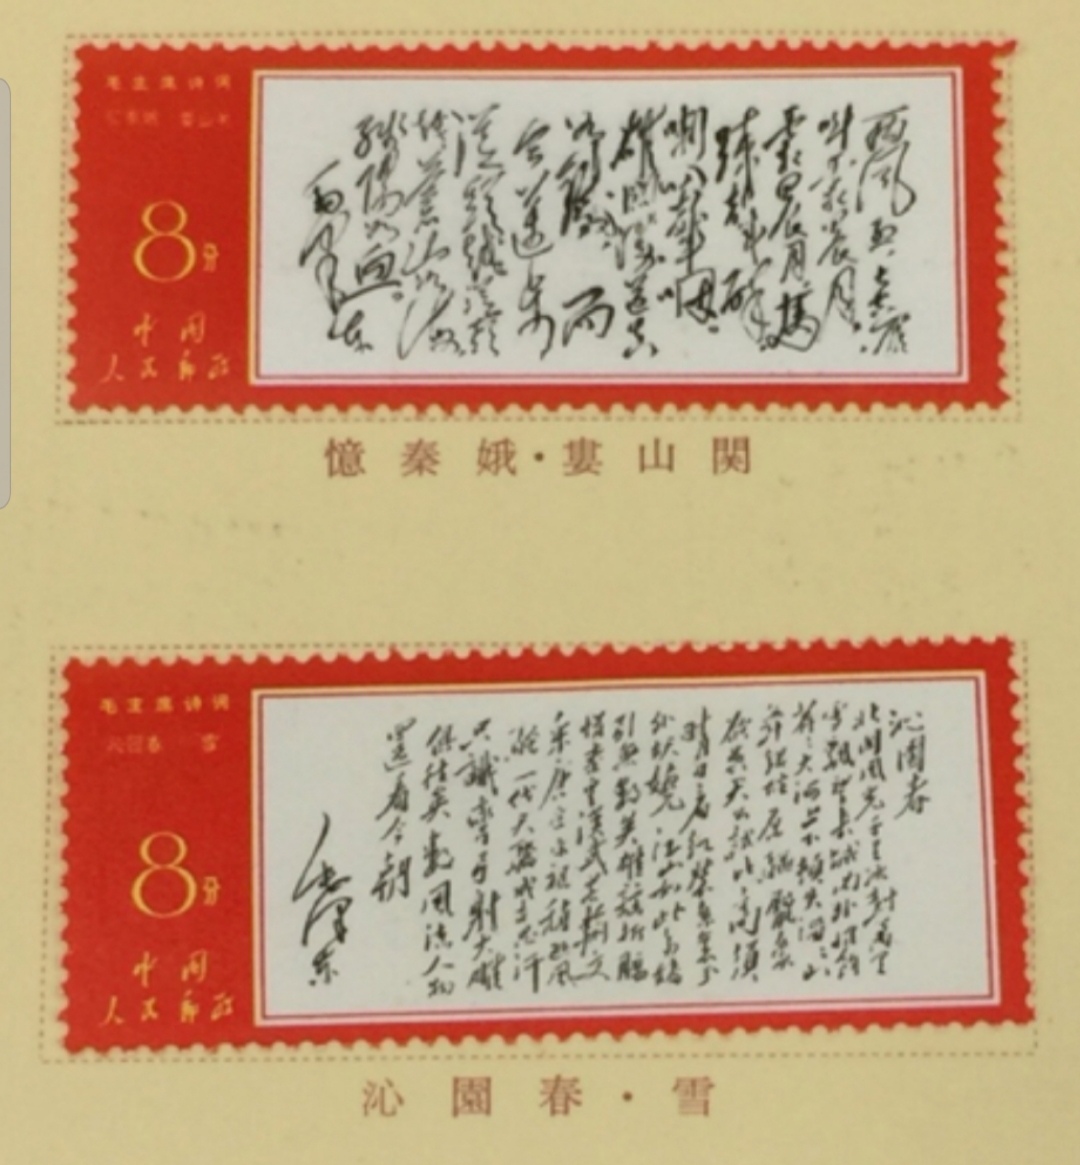 毛主席诗词
忆秦娥 娄山关
8分
中国
人民邮政
西风烈，长空雁
叫霜晨月。
霜晨月，馬
蹄声碎，
喇叭声咽。
雄关漫道真
如铁，而
今迈步
从头越。
从头越，
苍山如海，
残阳如血。
毛泽东
憶秦娥·婁山関
毛主席诗词
沁园春 雪
8分
中国
人民邮政
沁园春
北国风光千里冰封万里
雪飘望长城内外惟馀
莽莽大河上下顿失滔滔山
舞银蛇原驰腊象
欲与天公试比高须
晴日看红装素裹分
外妖娆江山如此多娇
引无数英雄竞折腰
惜秦皇汉武略输文
采唐宗宋祖稍逊风
骚一代天骄成吉思汗
只識弯弓射大雕
俱往矣数风流人物
還看今朝
毛泽东
沁園春·雪